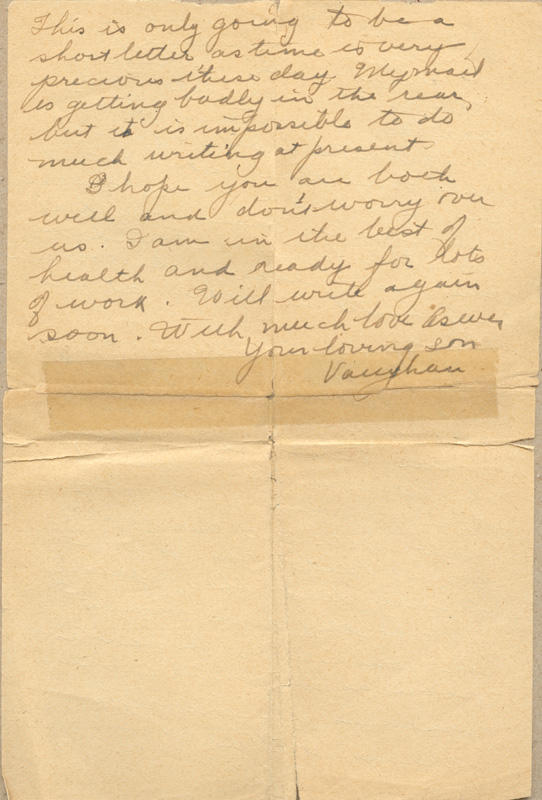 This is only going to be a
short letter as time is very
precious these day. My mail
is getting badly in the rear,
but it is impossible to do
much writing at present.
I hope you are both
well and don't worry over
us. I am in the best of
health and ready for lots
of work. Will write again
soon. With much love as ever
Your loving son
Vaughan